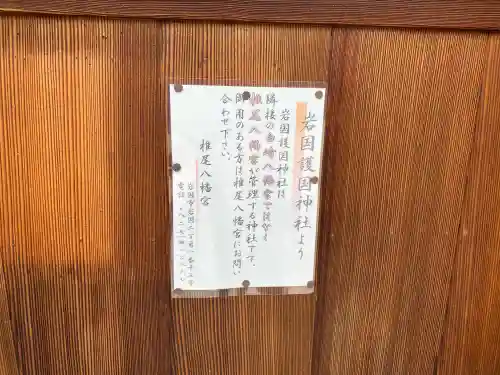 岩国護国神社より
岩国護国神社は
隣接の白崎八幡宮ではなく
椎尾八幡宮が管理する神社です。
御用のある方は椎尾八幡宮にお問い
合わせ下さい。
椎尾八幡宮
岩国市岩国二丁目
電話